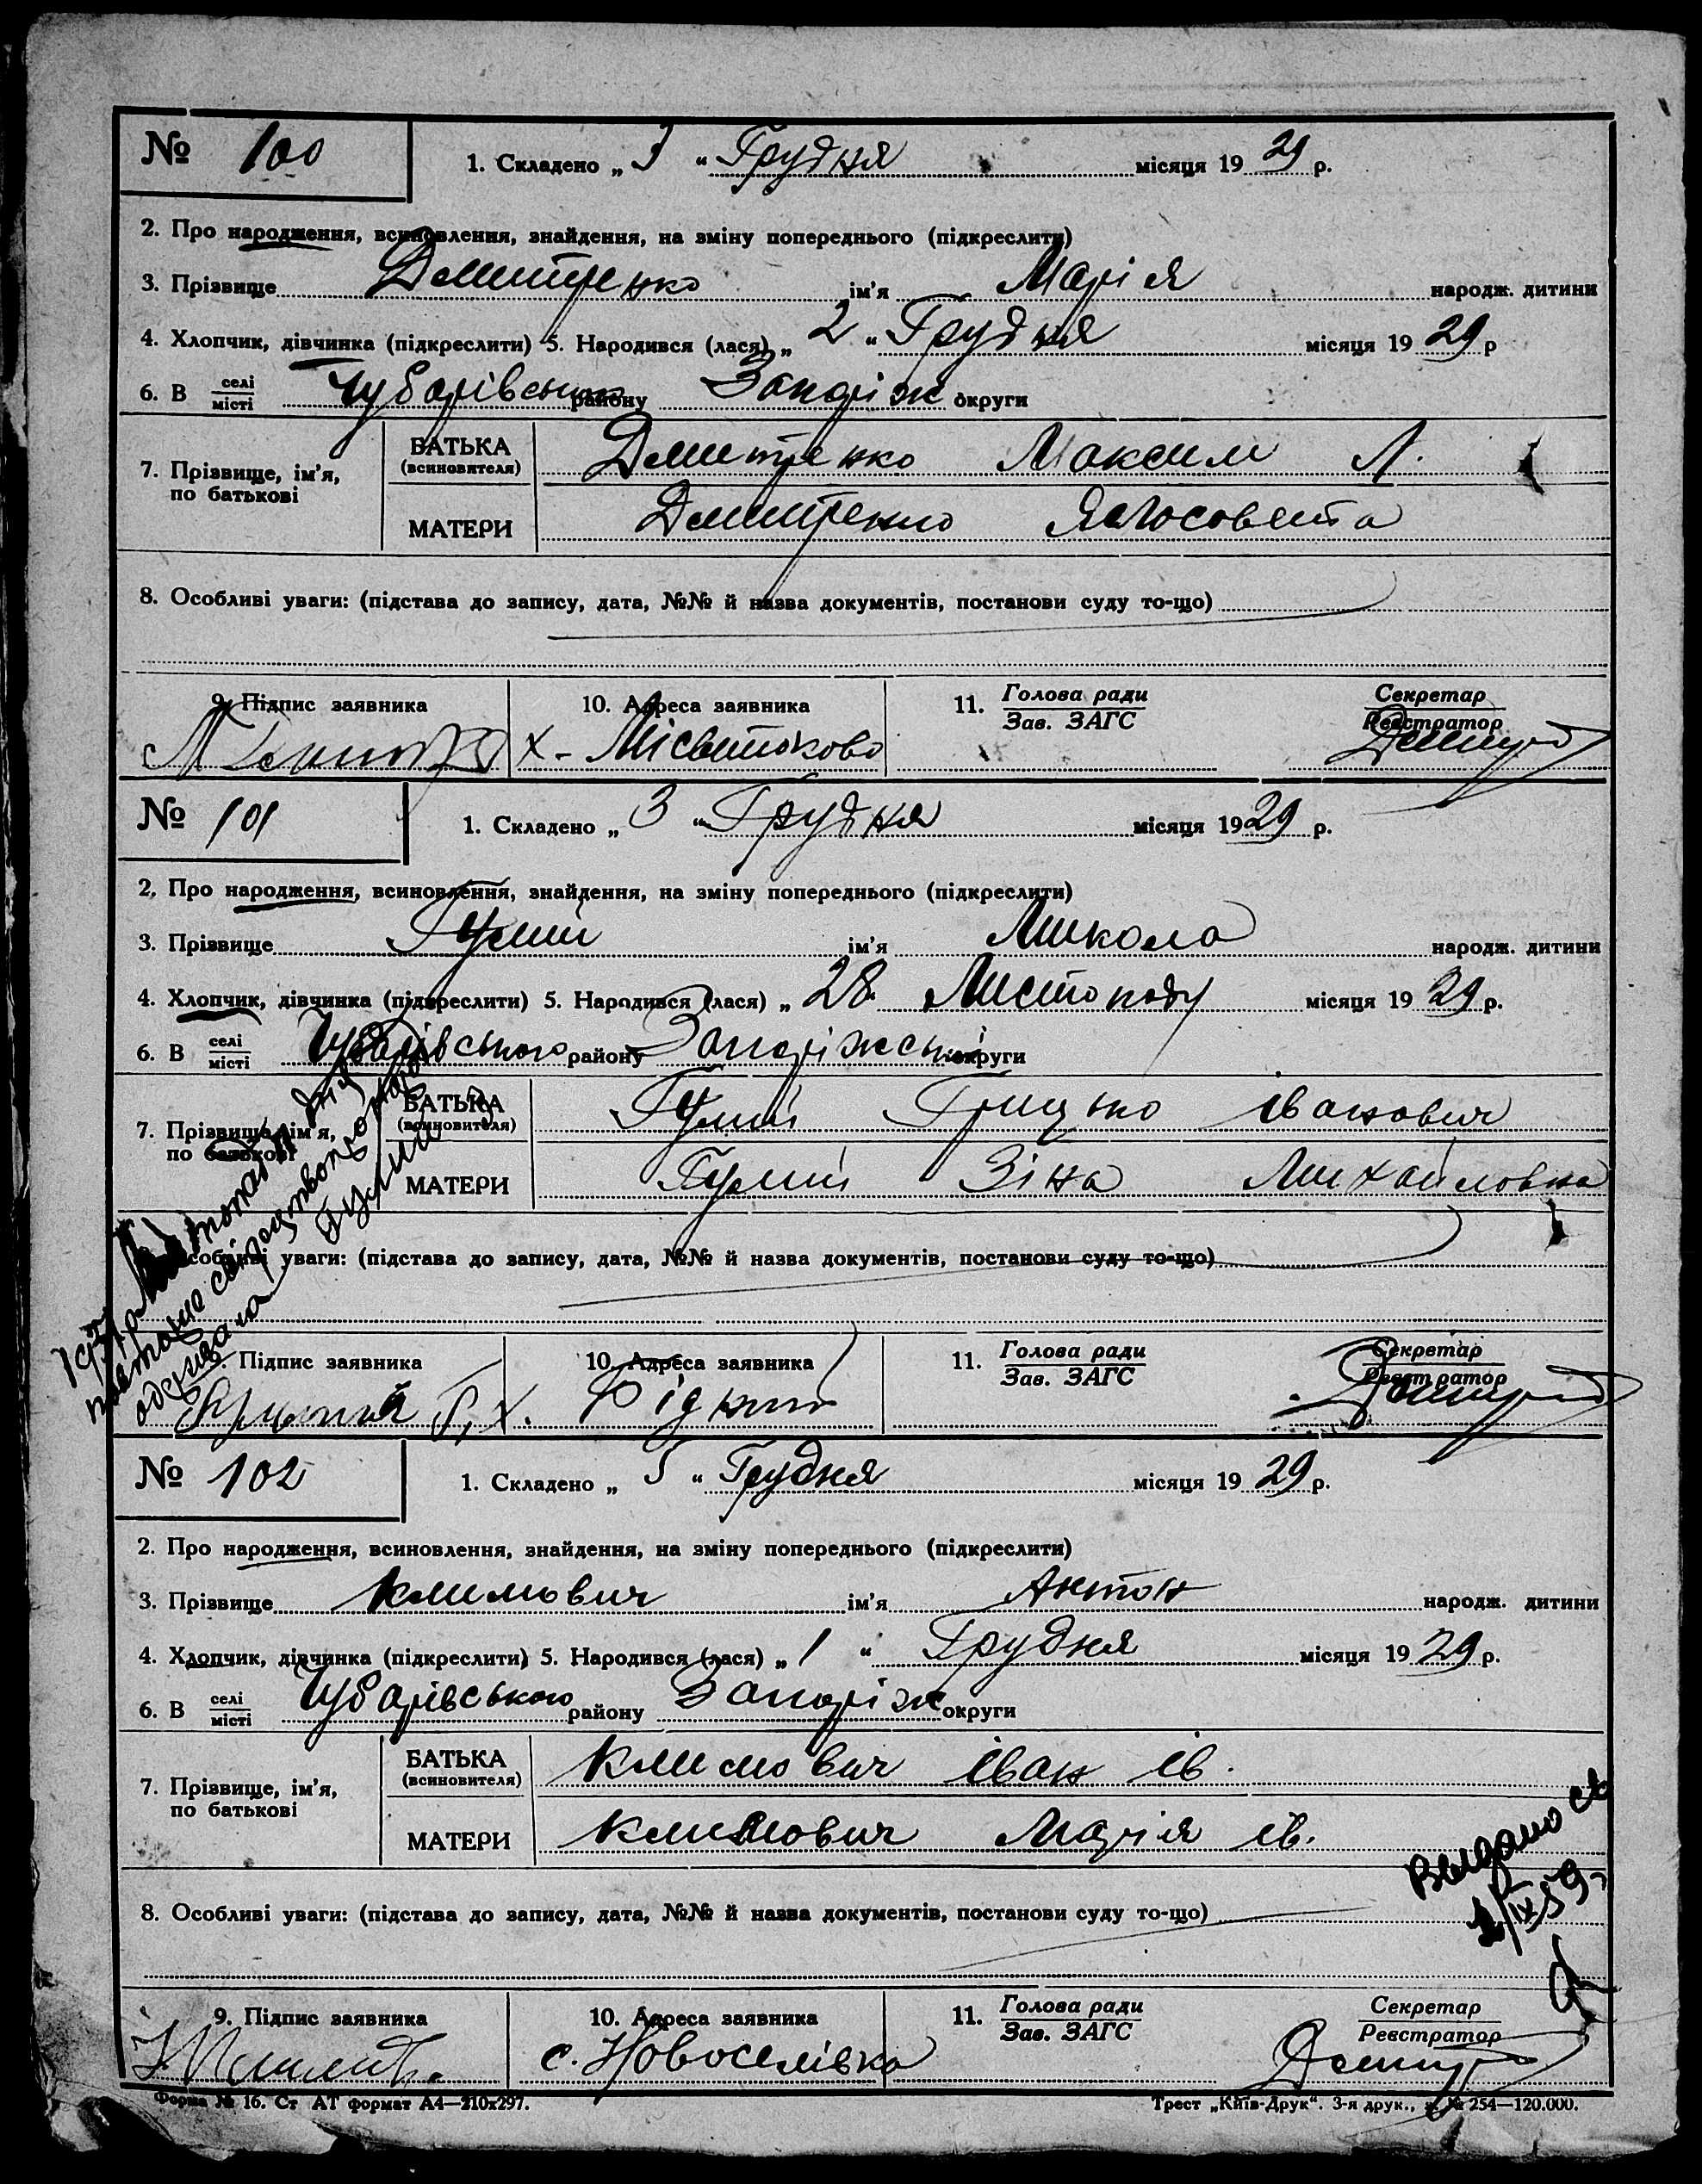 № 100
1. Складено „ 3 “ Грудня місяця 1929 р.
2. Про народження, всиновлення, знайдення, на зміну попереднього (підкреслити)
3. Прізвище Дмитренко ім’я Марія народж. дитини
4. Хлопчик, дівчинка (підкреслити) 5. Народився (лася) „ 2 “ Грудня місяця 1929 р
6. В селі/місті Чубарівського району Запоріж округи
7. Прізвище, ім’я, по батькові
БАТЬКА (всиновителя) Дмитренко Максим Л.
МАТЕРИ Дмитренко Ялисовета
8. Особливі уваги: (підстава до запису, дата, №№ й назва документів, постанови суду то-що)
9. Підпис заявника 10. Адреса заявника 11. Голова ради/Зав. ЗАГС Секретар/Реєстратор
х-
№ 101
1. Складено „ 3 “ Грудня місяця 1929 р.
2. Про народження, всиновлення, знайдення, на зміну попереднього (підкреслити)
3. Прізвище Гумній ім’я Микола народж. дитини
4. Хлопчик, дівчинка (підкреслити) 5. Народився (лася) „ 28 Листопаду місяця 1929 р.
6. В селі/місті Чубарівського району Запоріжської округи
7. Прізвище, ім’я, по батькові
БАТЬКА (всиновителя) Грицько Іванович
МАТЕРИ Зіна Михайловна
Особливі уваги: (підстава до запису, дата, №№ й назва документів, постанови суду то-що)
9. Підпис заявника 10. Адреса заявника 11. Голова ради/Зав. ЗАГС Секретар/Реєстратор
х.
№ 102
1. Складено „ 5 “ Грудня місяця 1929 р.
2. Про народження, всиновлення, знайдення, на зміну попереднього (підкреслити)
3. Прізвище Климович ім’я Антон народж. дитини
4. Хлопчик, дівчинка (підкреслити) 5. Народився (лася) „ 1 “ Грудня місяця 1929 р.
6. В селі/місті Чубарівського району Запоріж округи
7. Прізвище, ім’я, по батькові
БАТЬКА (всиновителя) Климович Іван Ів.
МАТЕРИ Климович Марія Ів.
Выдано св
1/IX 59г
8. Особливі уваги: (підстава до запису, дата, №№ й назва документів, постанови суду то-що)
9. Підпис заявника 10. Адреса заявника 11. Голова ради/Зав. ЗАГС Секретар/Реєстратор
с. Новоселівка
Форма № 16. Ст АТ формат А4—210х297.
Трест „Київ-Друк“. 3-я друк., з. № 254—120.000.